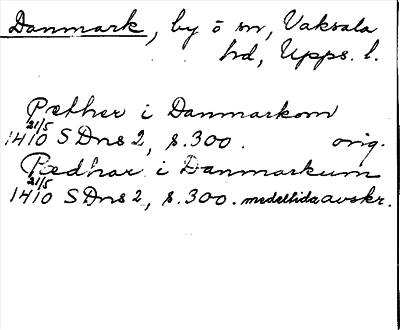 Danmark, by o sn, Vaksala
hd, Upps. l.
Pæther i Danmarkom
1410 21/5 SDns 2, s. 300. orig.
Pædhar i Danmarkum
1410 21/5 SDns 2, s. 300. medeltida avskr.